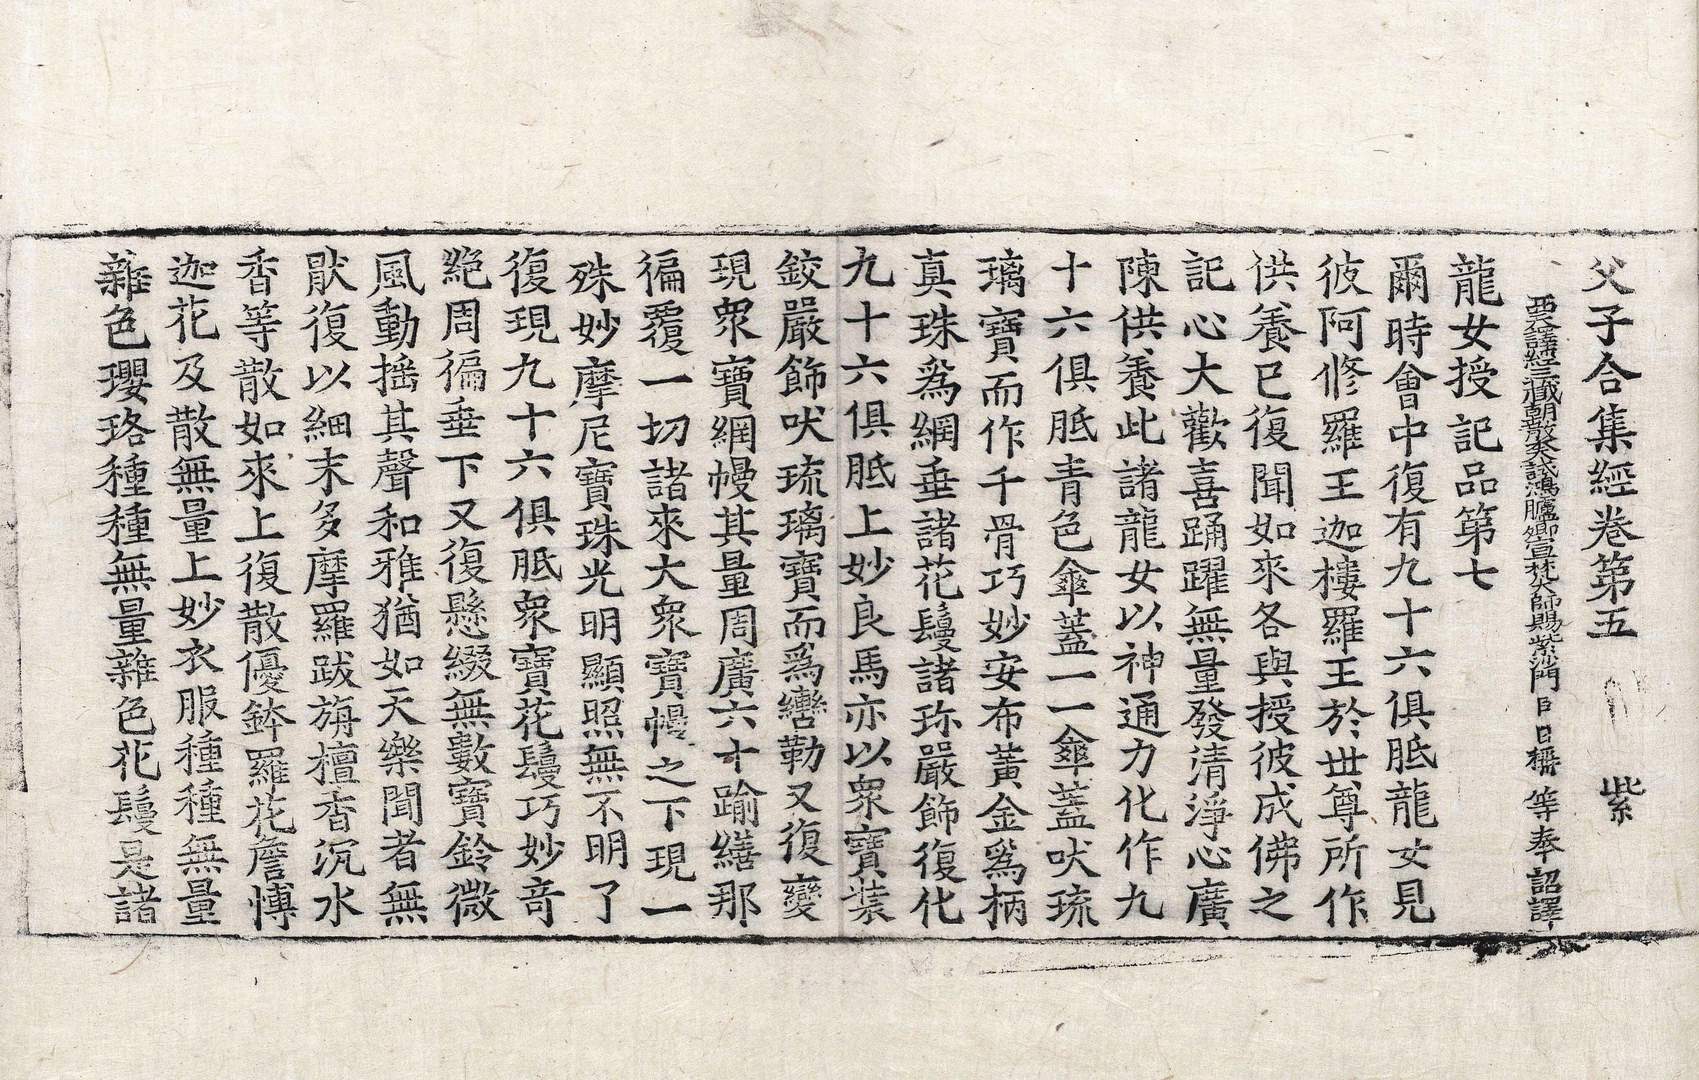 父子合集經卷第五　紫
西天譯經三藏朝散大夫試鴻臚卿宣梵大師賜紫沙門臣日稱等奉詔譯
龍女授記品第七
爾時會中復有九十六俱胝龍女見
彼阿修羅王迦樓羅王於世尊所作
供養已復聞如來各與授彼成佛之
記心大歡喜踊躍無量發清淨心廣
陳供養此諸龍女以神通力化作九
十六俱胝青色傘蓋一一傘蓋吠琉
璃寶而作千骨巧妙安布黃金爲柄
真珠爲網垂諸花鬘諸珎嚴飾復化
九十六俱胝上妙良馬亦以衆寶裝
鉸嚴飾吠琉璃寶而爲轡勒又復變
現衆寶網幔其量周廣六十踰繕那
徧覆一切諸來大衆寶幔之下現一
殊妙摩尼寶珠光明顯照無不明了
復現九十六俱胝衆寶花鬘巧妙竒
絶周徧垂下又復懸綴無數寶鈴微
風動揺其聲和雅猶如天樂聞者無
猒復以細末多摩羅跋旃檀香沉水
香等散如來上復散優鉢羅花詹博
迦花及散無量上妙衣服種種無量
雜色瓔珞種種無量雜色花鬘是諸